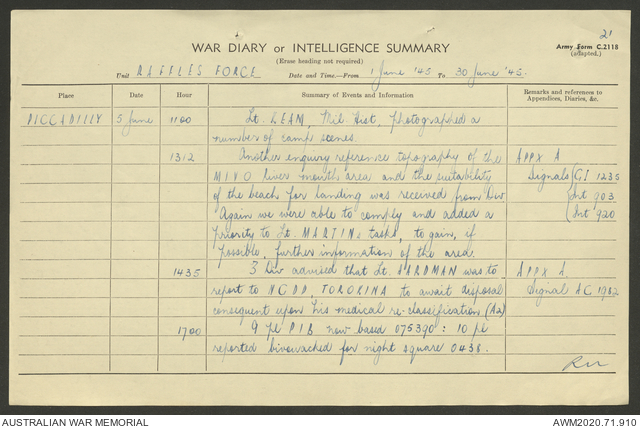 21
WAR DIARY or INTELLIGENCE SUMMARY
Army Form C.2118
(adapted.)
(Erase heading not required)
Unit RAFFLES FORCE Date and Time.—From 1 June '45 To 30 June '45.
Place Date Hour Summary of Events and Information Remarks and references to
Appendices, Diaries, &c.
PICCADILLY 5 June 1100 Lt. LEAM, Mil Hist. photographed a
number of camp scenes.
1312 Another enquiry reference topography of the APPX A
MIVO river mouth area and the suitability Signals (GI 1235
of the beach for landing was received from Div (Int 903
Again we were able to comply and added a (Int 920
priority to Lt. MARTINs task, to gain, if
possible, further information of the area.
1435 3 Div advised that Lt. HARDMAN was to APPX A
report to NGDD, TOROKINA to await disposal Signal AC 1982
consequent upon his medical re-classification (A2)
1700 9 pl PIB now based 075390 : 10 pl
reported bivouacked for night square 0438.
AUSTRALIAN WAR MEMORIAL AWM2020.71.910